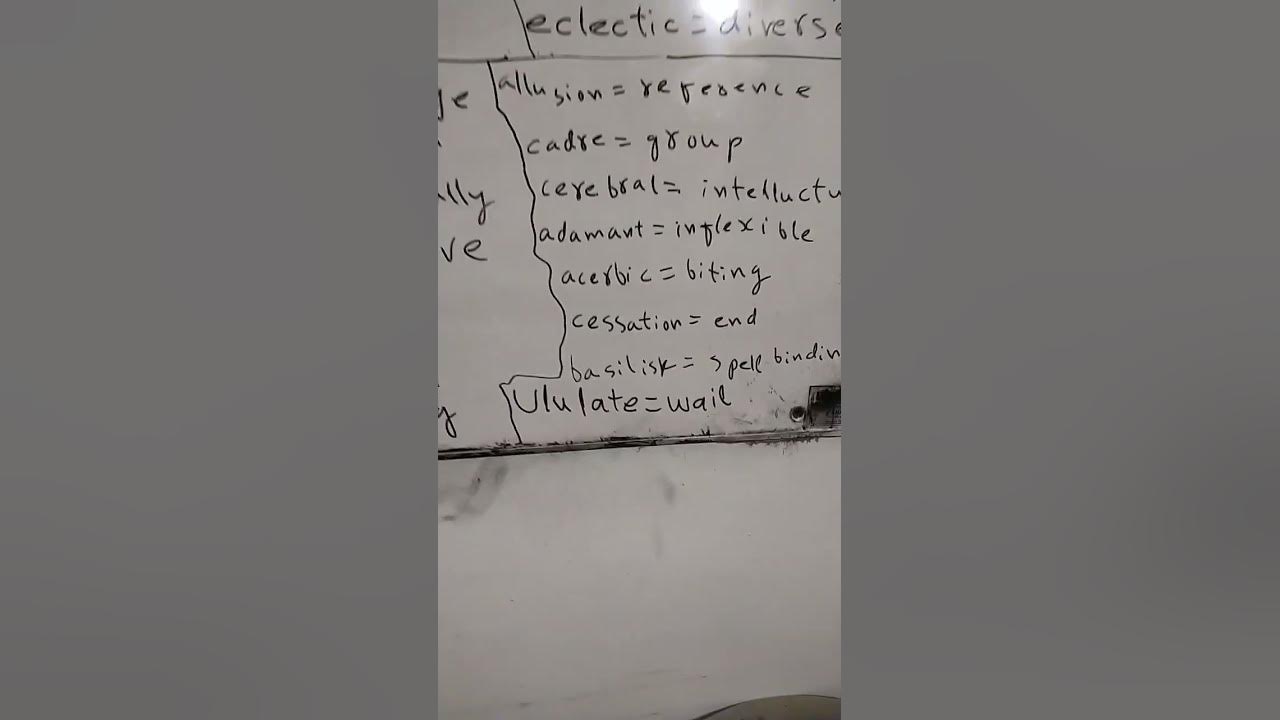 eclectic = diverse
allusion = reference
cadre = group
cerebral = intelluctu
adamant = inflexible
acerbic = biting
cessation = end
basilisk = spell bindin
Ululate = wail
lly
ve
y